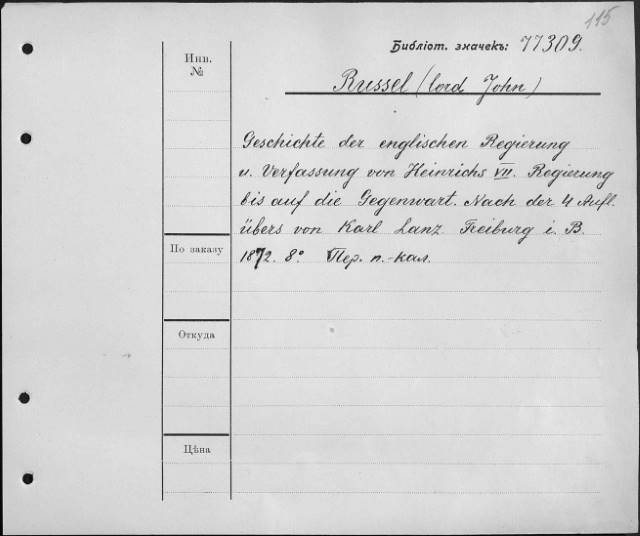 115
Библіот. значекъ: 77309.
Инв.
№
Russel (lord John)
Geschichte der englischen Regierung
u. Verfassung von Heinrichs VII. Regierung
bis auf die Gegenwart. Nach der 4 Aufl.
übers von Karl Lanz Freiburg i. B.
1872. 8° Пер. п.-кал.
По заказу
Откуда
Цѣна